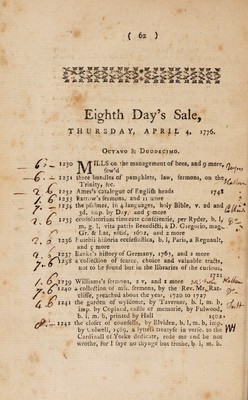 ( 62 )
Eighth Day's Sale,
THURSDAY, APRIL 4, 1776.
OCTAVO & DUODECIMO.
1230 MILLS on the management of bees, and 9 more,
few'd
1231 three bundles of pamphlets, law, sermons, on the
Trinity, &c.
1232 Ames's catalogue of English heads 1748
1233 Barrow's sermons, and 11 more
1234 the psalmes, in 4 languages, holy Bible, v. 2d and
3d, imp. by Day, and 5 more
1235 consolatorium timorate conscientie, per Ryder, b. l,
m, g. l, vita patris Benedicti, à D. Gregorio, mag.
Gr. & Lat, edit. 1602, and 2 more
1236 Eusebii historia ecclesiastica, b. l, Paris, a Regnault,
and 5 more
1237 Banks's history of Germany, 1763, and 2 more
1238 a collection of scarce, choice and valuable tracts,
not to be found but in the libraries of the curious,
1721
1239 Williams's sermons, 2 v, and 2 more
1240 a collection of mss. sermons, by the Rev. Mr. Rat-
cliffe, preached about the year, 1720 to 1727
1241 the garden of wysdome, by Taverner, b. l, m. b,
imp. by Copland, castle of memorie, by Fulwood,
b. l, m. b, printed by Hall
1242 the closet of counsells, by Elviden, b. l, m. b, imp.
by Colwell, 1569, a lytell treatyse in verse to the
Cardinall of Yorke dedicate, rede me and be not
wrothe, for I saye no thynge but trothe, b. l, m. b,